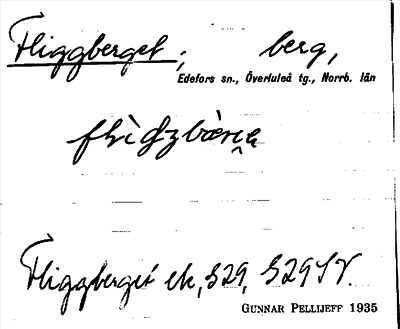 Fliggberget; berg,
Edefors sn., Överluleå tg., Norrb. län
Fliggberget ek, S29, S29SV.
GUNNAR PELLIJEFF 1935